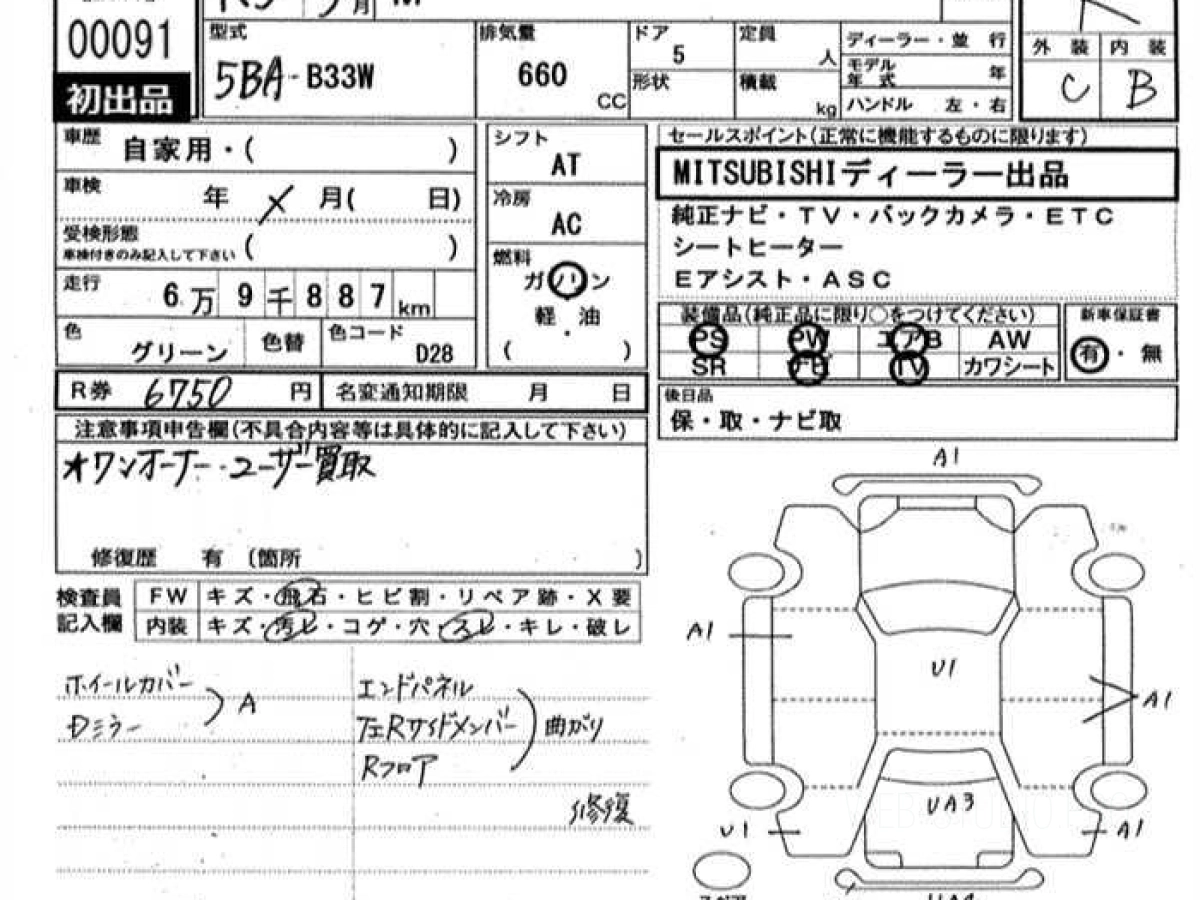 00091
初出品
型式
5BA-B33W
排気量
660
CC
ドア
5
形状
定員
人
積載
kg
ディーラー・並 行
モデル
年 式 年
ハンドル 左・右
外 装 内 装
C B
車歴
自家用・( )
車検
年 月( 日)
受検形態
車検付きのみ記入して下さい ( )
走行
6万9千887km
色
グリーン
色替
色コード
D28
シフト
AT
冷房
AC
燃料
ガソリン
軽 油
・
( )
セールスポイント(正常に機能するものに限ります)
MITSUBISHIディーラー出品
純正ナビ・TV・バックカメラ・ETC
シートヒーター
Eアシスト・ASC
装備品(純正品に限り○をつけてください)
PS PW エアB AW
SR ナビ TV カワシート
新車保証書
有・無
後日品
保・取・ナビ取
R券 6750 円
名変通知期限 月 日
注意事項申告欄(不具合内容等は具体的に記入して下さい)
オワンオーナー・ユーザー買取
修復歴 有 (箇所 )
検査員
記入欄
FW キズ・飛石・ヒビ割・リペア跡・X要
内装 キズ・汚レ・コゲ・穴・スレ・キレ・破レ
ホイールカバー
Dミラー
A
エンドパネル
左Rサイドメンバー
Rフロア
曲がり
修復
A1
A1
U1
A1
UA3
U1
A1